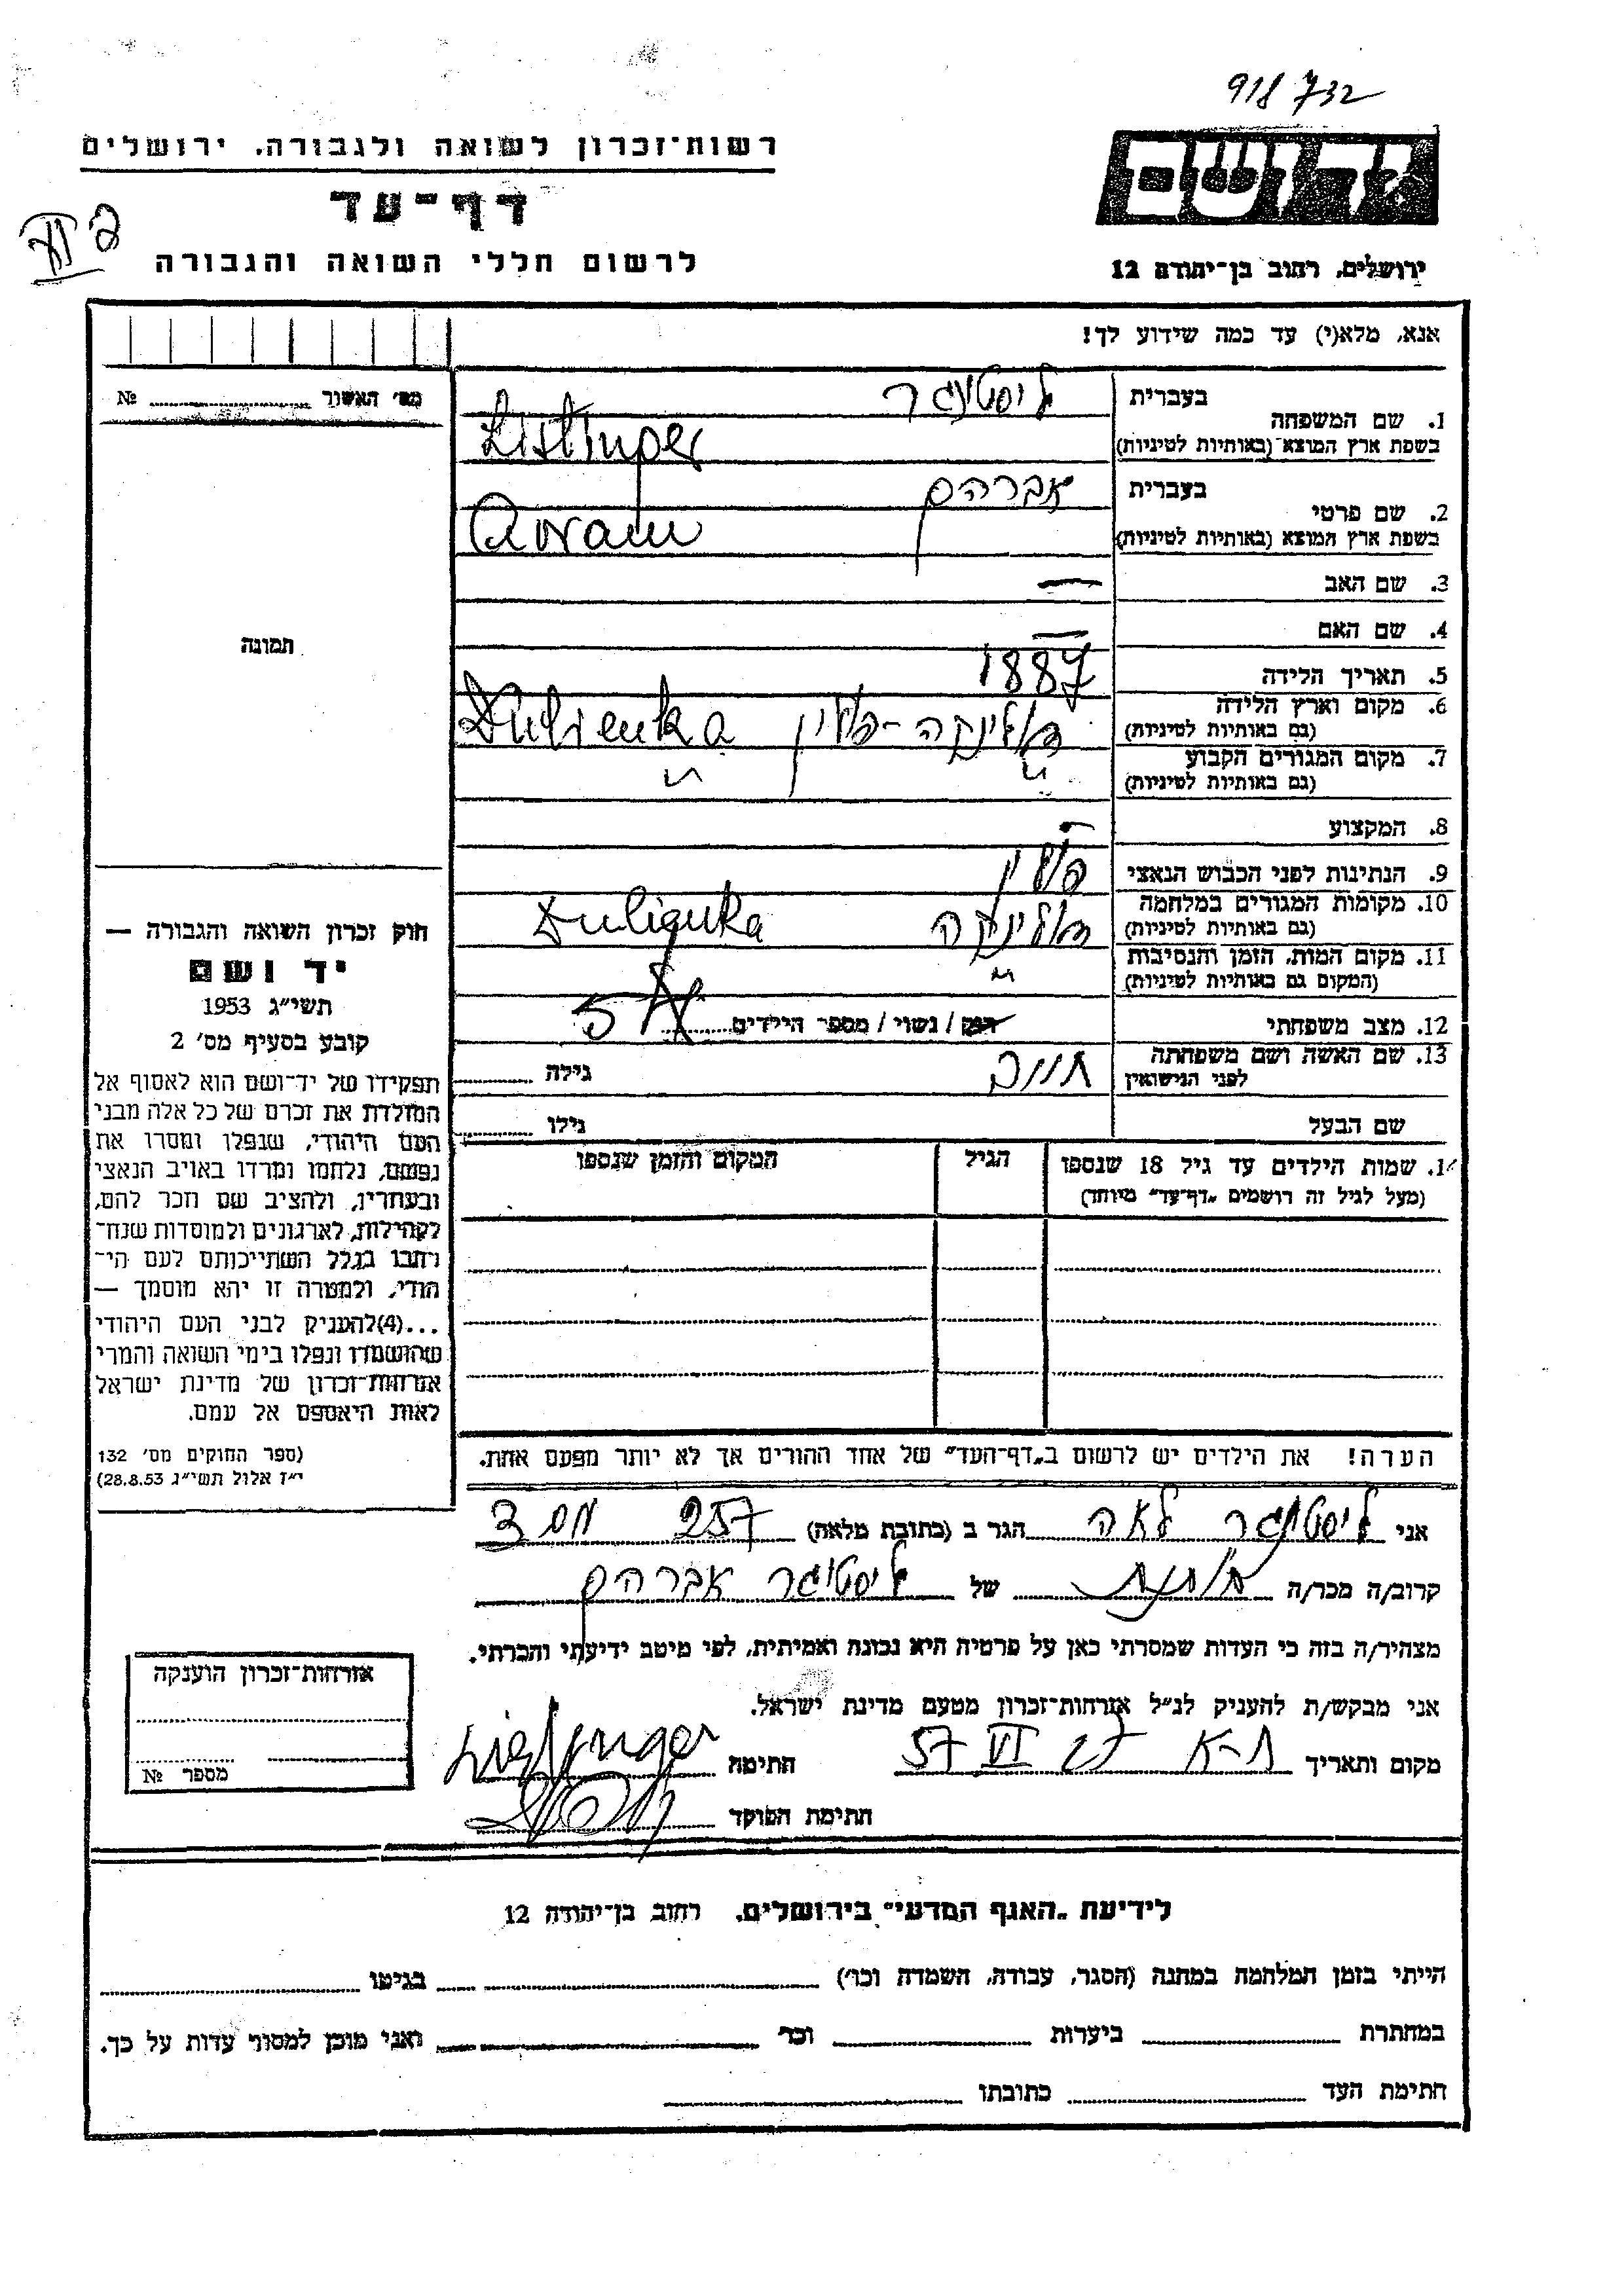 918732
רשות־זכרון לשואה ולגבורה, ירושלים
דף־עד
לרשום חללי השואה והגבורה
יד ושם
ירושלים, רחוב בן־יהודה 12
אנא, מלא(י) עד כמה שידוע לך!
מס׳ האשור № 
1. שם המשפחה
בעברית ליסטינגר
בשפת ארץ המוצא (באותיות לטיניות)
2. שם פרטי
בעברית אברהם
בשפת ארץ המוצא (באותיות לטיניות) Avram
3. שם האב —
4. שם האם —
5. תאריך הלידה 1887
6. מקום וארץ הלידה
(גם באותיות לטיניות)
7. מקום המגורים הקבוע
(גם באותיות לטיניות)
8. המקצוע —
9. הנתינות לפני הכבוש הנאצי פולין
10. מקומות המגורים במלחמה
(גם באותיות לטיניות)
11. מקום המות, הזמן והנסיבות
(המקום גם באותיות לטיניות)
12. מצב משפחתי רווק / נשוי / מספר הילדים 5
13. שם האשה ושם משפחתה
לפני הנישואין
גילה
שם הבעל
גילו
14. שמות הילדים עד גיל 18 שנספו
(מעל לגיל זה רושמים „דף־עד” מיוחד)
הגיל
המקום והזמן שנספו
הערה! את הילדים יש לרשום ב„דף־העד” של אחד ההורים אך לא יותר מפעם אחת.
תמונה
חוק זכרון השואה והגבורה —
יד ושם
תשי״ג 1953
קובע בסעיף מס׳ 2
תפקידו של יד־ושם הוא לאסוף אל
המולדת את זכרם של כל אלה מבני
העם היהודי, שנפלו ומסרו את
נפשם, נלחמו ומרדו באויב הנאצי
ובעוזריו, ולהציב שם וזכר להם,
לקהילות, לארגונים ולמוסדות שנח־
רחבו בגלל השתייכותם לעם הי־
הודי, ולמטרה זו יהא מוסמך —
...(4)להעניק לבני העם היהודי
שהושמדו ונפלו בימי השואה והמרי
אזרחות־זכרון של מדינת ישראל
לאות היאספם אל עמם.
(ספר החוקים מס׳ 132
י״ז אלול תשי״ג 28.8.53)
אני ליסטינגר לאה הגר ב (כתובת מלאה) 257
קרוב/ה מכר/ה של ליסטינגר אברהם
מצהיר/ה בזה כי העדות שמסרתי כאן על פרטיה היא נכונה ואמיתית, לפי מיטב ידיעתי והכרתי.
אני מבקש/ת להעניק לנ״ל אזרחות־זכרון מטעם מדינת ישראל.
מקום ותאריך ת-א 27 VI 57 חתימה
חתימת הפוקד
אזרחות־זכרון הוענקה
מספר №
לידיעת „האגף המדעי” בירושלים, רחוב בן־יהודה 12
הייתי בזמן המלחמה במחנה (הסגר, עבודה, השמדה וכו׳) בגיטו
במחתרת ביערות וכו׳ ואני מוכן למסור עדות על כך.
חתימת העד כתובתו